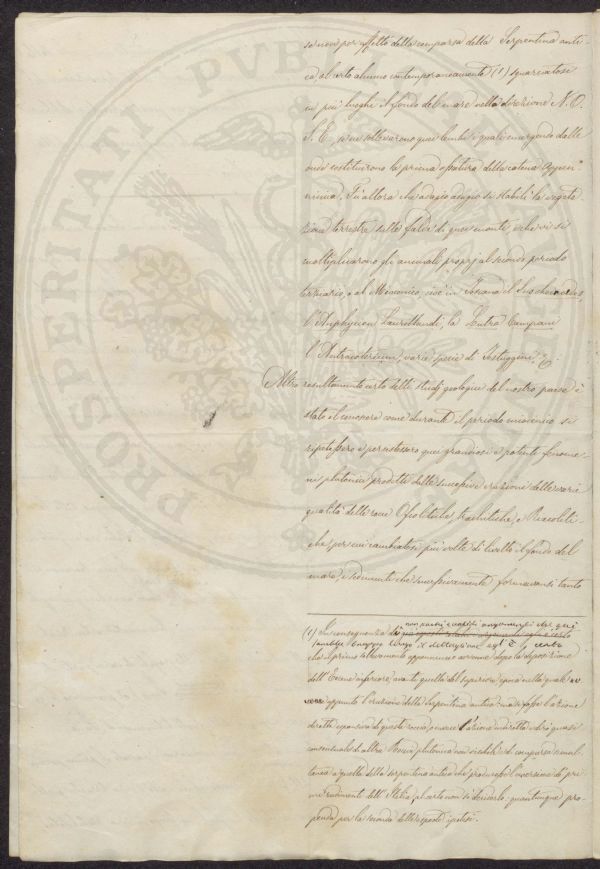 se non per effetto della comparsa della Serpentina anti-
ca al certo almeno contemporaneamente (1) squarciatosi
in più luoghi il fondo del mare nella direzione N.O.
S.E., se ne sollevarono quei lembi i quali emergendo dalle
onde costituirono la prima ossatura della catena Appen-
ninica. Fu allora che adagio adagio si stabilì la vegeta-
zione terrestre sulle falde di quei monti, e che vi si
moltiplicarono gli animali proprj al secondo periodo
terziario, o al Miocenico, cioè in Toscana il
l'Amphycion Laurillardi, la Lutra Campani
l'Antracoterium, varie specie di Testuggini &.
Altro resultamento certo delli studj geologici del nostro paese è
stato il conoscere come durante il periodo miocenico si
ripetessero e persistessero quei grandiosi e potenti fenome-
ni plutonici prodotti dalle successive eruzioni delle varie
qualità delle rocce Ofiolitiche, trachitiche, e
che, per cui cambiatosi più volte di livello il fondo del
mare, i sedimenti che successivamente formavansi tanto
non pochi e validi argomenti che qui
(1) In conseguenza di
sarebbe troppo lungo il dettagliare egli è certo
che il primo sollevamento appenninico avvenne dopo la deposizione
dell'Eocene inferiore, avanti quella del superiore epoca nella quale av-
venne appunto l'eruzione della Serpentina antica: ma se fosse l'azione
diretta espansiva di questa roccia, o invece l'azione indiretta ed in quasi
consensuale d'altra roccia plutonica non visibile ed comparsa simul-
tanea a quella della serpentina antica che producesse l'emersione de' pri-
mi rudimenti dell'Italia, al certo non si deciderlo: quantunque pro-
penda per la seconda delle esposte ipotesi.